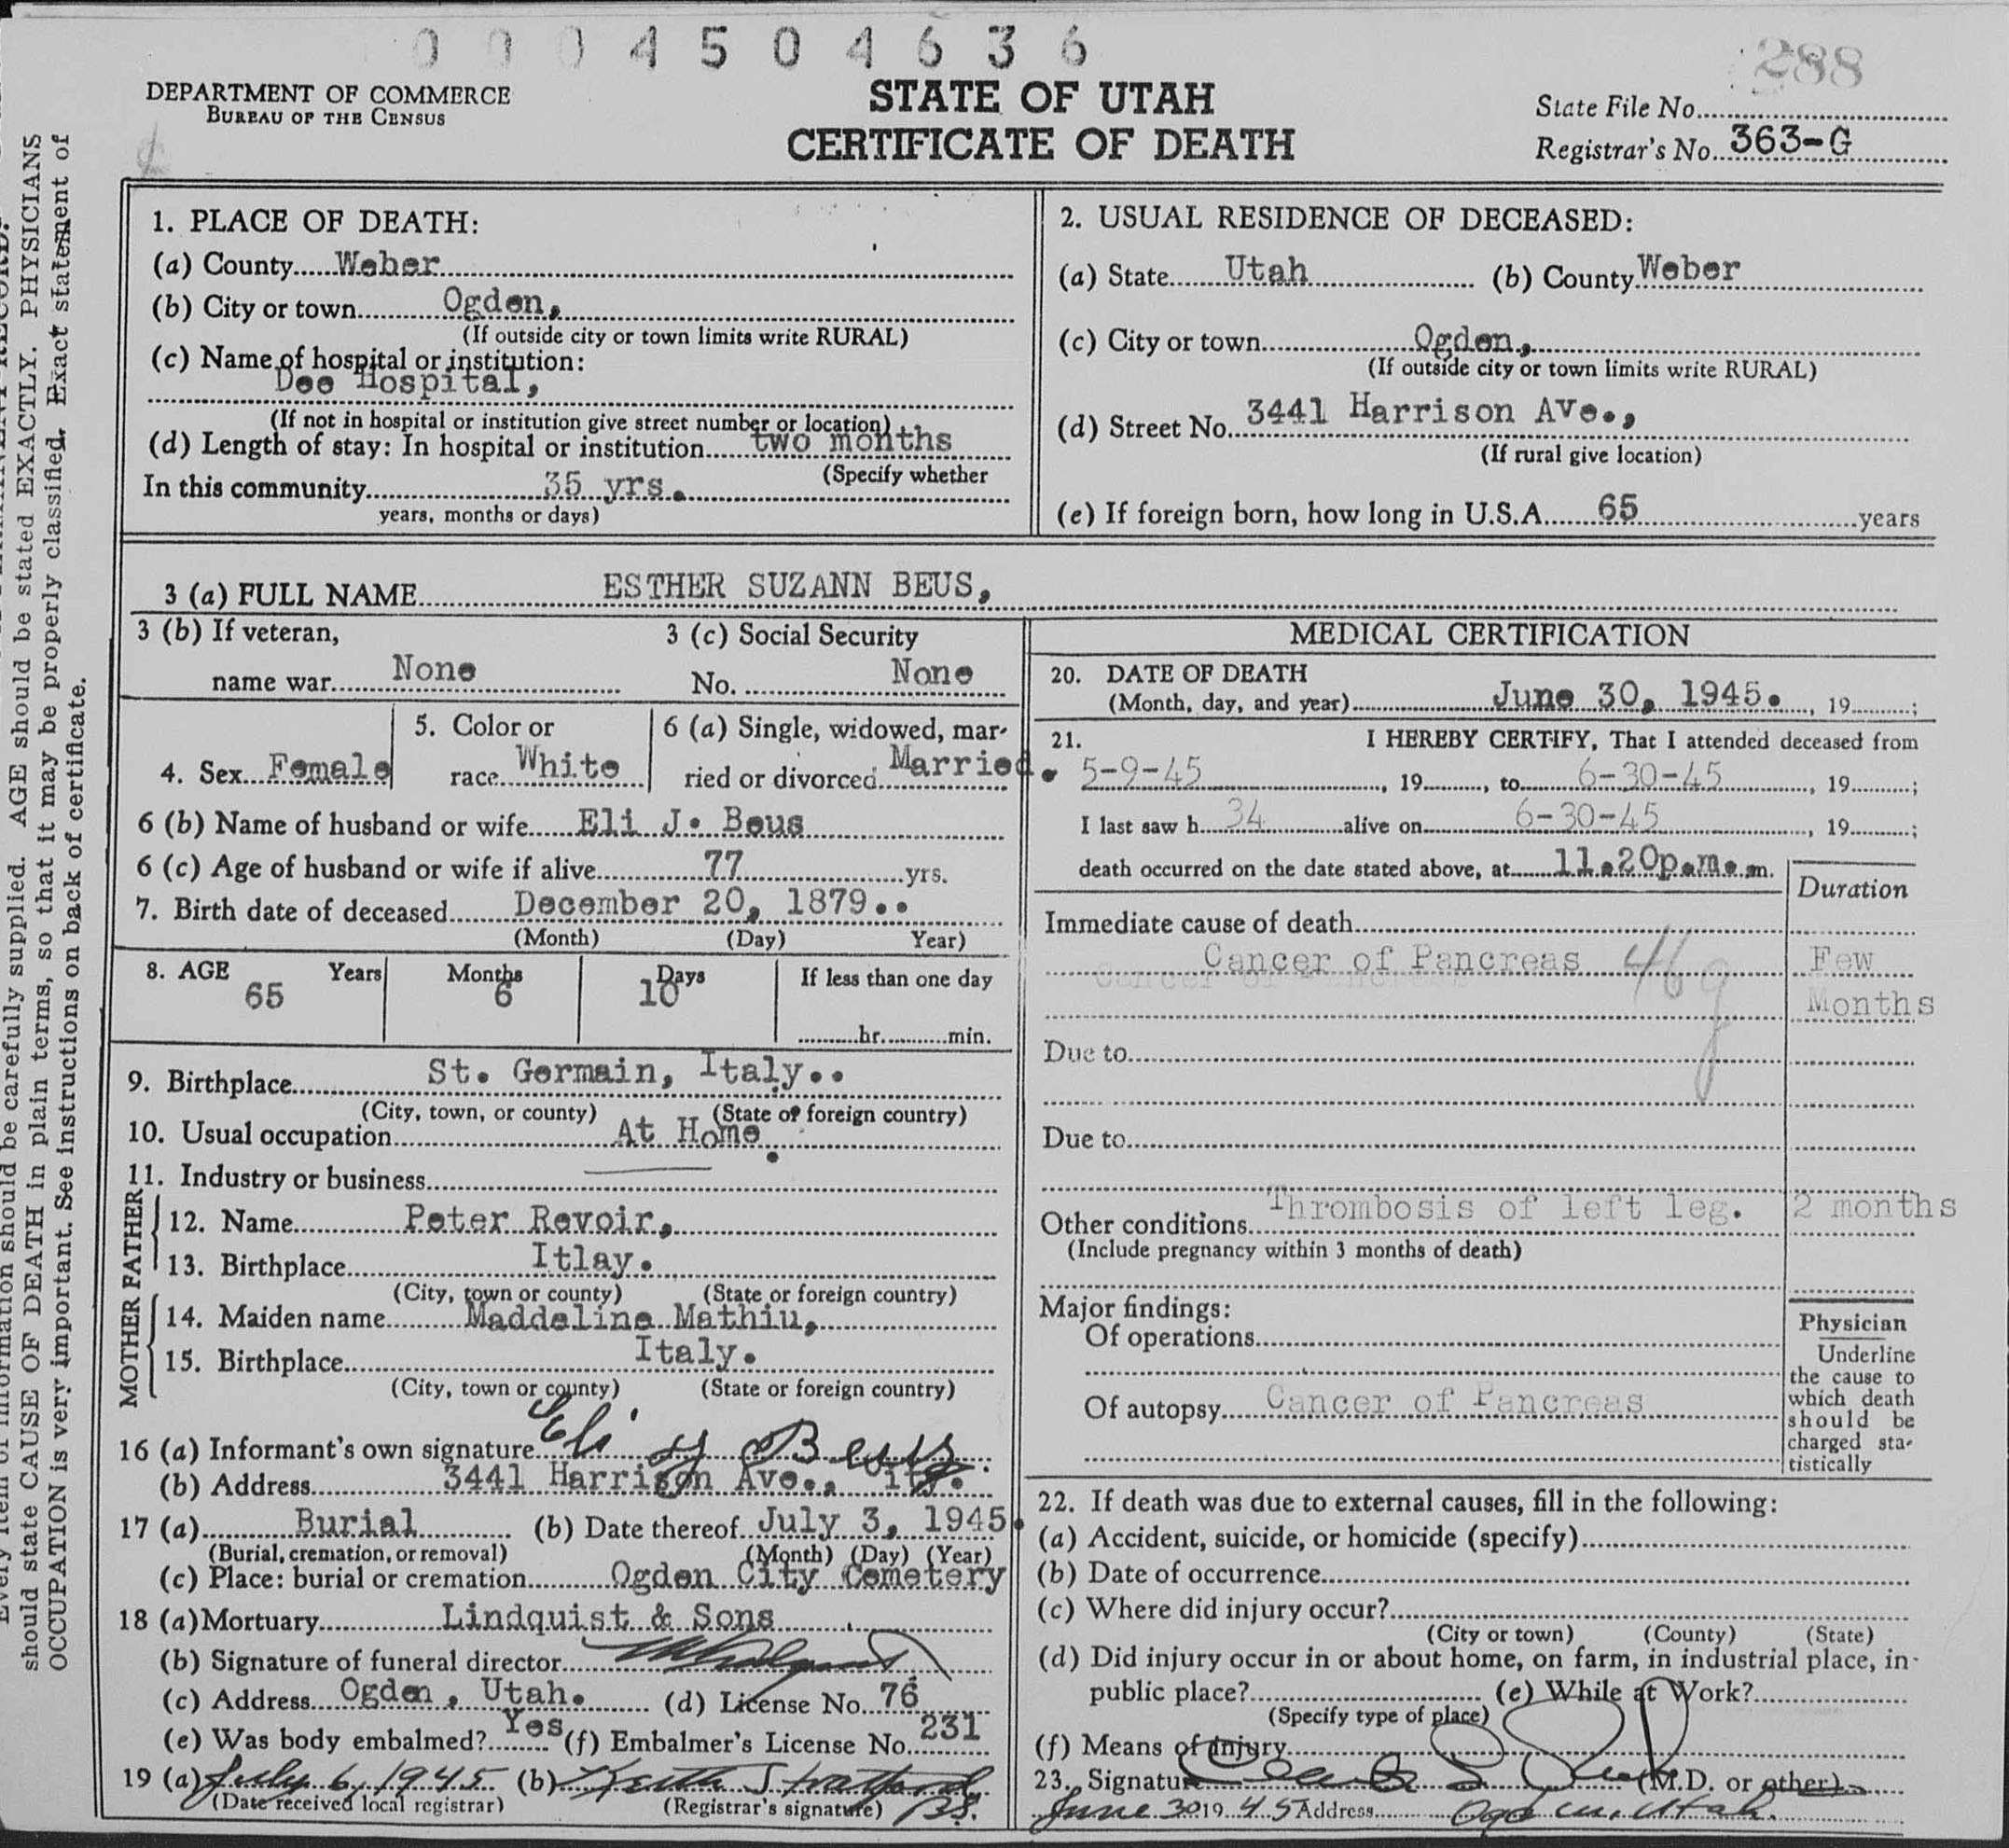 0 0 0 4 5 0 4 6 3 6
288
DEPARTMENT OF COMMERCE
BUREAU OF THE CENSUS
STATE OF UTAH
CERTIFICATE OF DEATH
State File No.
Registrar's No. 363-G
1. PLACE OF DEATH:
(a) County Weber
(b) City or town Ogden,
(If outside city or town limits write RURAL)
(c) Name of hospital or institution:
Dee Hospital,
(If not in hospital or institution give street number or location)
(d) Length of stay: In hospital or institution two months
(Specify whether
In this community 35 yrs.
years, months or days)
2. USUAL RESIDENCE OF DECEASED:
(a) State Utah (b) County Weber
(c) City or town Ogden,
(If outside city or town limits write RURAL)
(d) Street No. 3441 Harrison AVe.,
(If rural give location)
(e) If foreign born, how long in U.S.A. 65 years
3 (a) FULL NAME ESTHER SUZANN BEUS,
3 (b) If veteran,
name war None
3 (c) Social Security
No. None
4. Sex Female
5. Color or
race White
6 (a) Single, widowed, mar-
ried or divorced Married.
6 (b) Name of husband or wife Eli J. Beus
6 (c) Age of husband or wife if alive 77 yrs.
7. Birth date of deceased December 20, 1879..
(Month) (Day) Year)
8. AGE Years Months Days If less than one day
65 6 10
hr. min.
9. Birthplace St. Germain, Italy..
(City, town, or county) (State of foreign country)
10. Usual occupation At Home.
11. Industry or business
FATHER
12. Name Peter Revoir,
13. Birthplace Itlay.
(City, town or county) (State or foreign country)
MOTHER
14. Maiden name Maddeline Mathiu,
15. Birthplace Italy.
(City, town or county) (State or foreign country)
16 (a) Informant's own signature Eli J Beus
(b) Address 3441 Harrison Ave., City.
17 (a) Burial (b) Date thereof July 3, 1945.
(Burial, cremation, or removal) (Month) (Day) (Year)
(c) Place: burial or cremation Ogden City Cemetery
18 (a) Mortuary Lindquist & Sons
(b) Signature of funeral director
(c) Address Ogden, Utah. (d) License No. 76
(e) Was body embalmed? Yes (f) Embalmer's License No. 231
19 (a) July 6, 1945 (b) Keith Stratford
(Date received local registrar) (Registrar's signature)
MEDICAL CERTIFICATION
20. DATE OF DEATH
(Month, day, and year) June 30, 1945. , 19 ;
21. I HEREBY CERTIFY, That I attended deceased from
5-9-45 , 19 , to 6-30-45 , 19 ;
I last saw h 34 alive on 6-30-45 , 19 ;
death occurred on the date stated above, at 11.20p.m. m.
Duration
Immediate cause of death
Cancer of Pancreas 46g Few
Months
Due to
Due to
Other conditions Thrombosis of left leg. 2 months
(Include pregnancy within 3 months of death)
Major findings:
Of operations
Of autopsy Cancer of Pancreas
Physician
Underline
the cause to
which death
should be
charged sta-
tistically
22. If death was due to external causes, fill in the following:
(a) Accident, suicide, or homicide (specify)
(b) Date of occurrence
(c) Where did injury occur?
(City or town) (County) (State)
(d) Did injury occur in or about home, on farm, in industrial place, in-
public place? (e) While at Work?
(Specify type of place)
(f) Means of injury
23. Signature (M.D. or other)
June 30 19 45 Address Ogden, Utah.
should state CAUSE OF DEATH in plain terms, so that it may be properly classified. Exact statement of
OCCUPATION is very important. See instructions on back of certificate.
be carefully supplied. AGE should be stated EXACTLY. PHYSICIANS